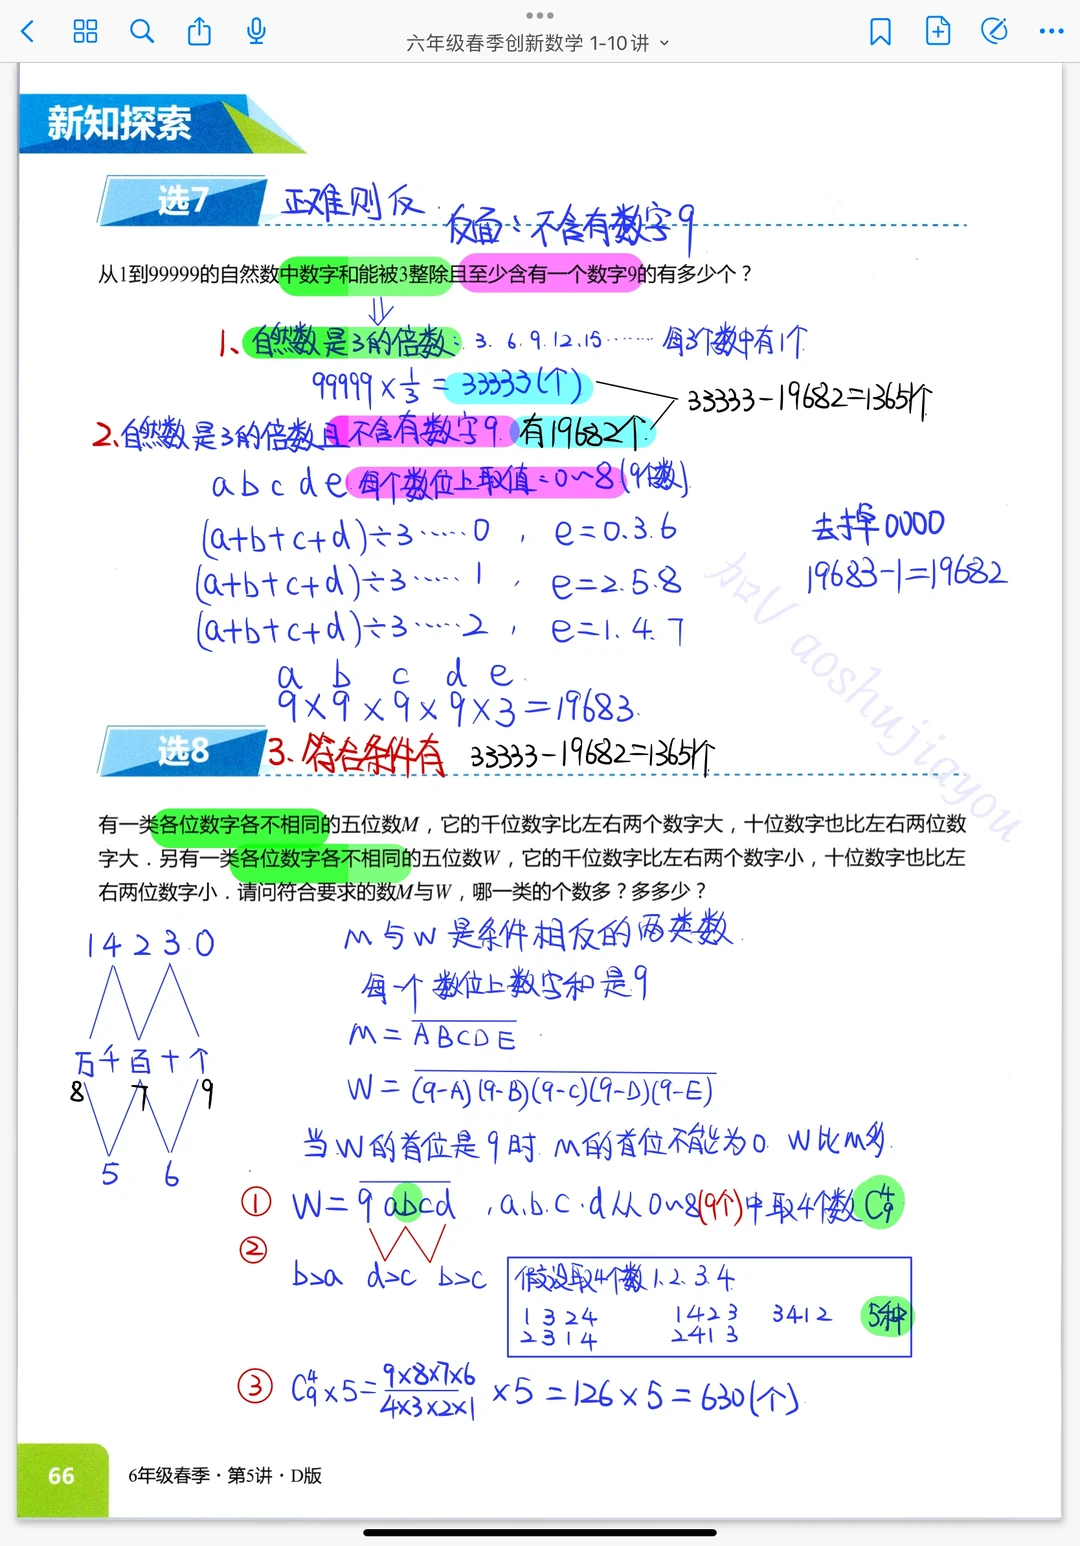 六年级春季创新数学 1-10讲
新知探索
选7
正难则反
反面：不含有数字9
从1到99999的自然数中数字和能被3整除且至少含有一个数字9的有多少个？
1、自然数是3的倍数：3. 6. 9. 12. 15 …… 每3个数中有1个
99999 × 1/3 = 33333(个)
33333-19682=13651个
2、自然数是3的倍数且不含有数字9. 有19682个.
a b c d e 每个数位上取值=0~8(9个数)
去掉0000
(a+b+c+d)÷3……0 , e=0.3.6
19683-1=19682
(a+b+c+d)÷3……1 , e=2.5.8
(a+b+c+d)÷3……2 , e=1.4.7
a b c d e.
9×9×9×9×3=19683.
选8
3、符合条件有 33333-19682=13651个
有一类各位数字各不相同的五位数M，它的千位数字比左右两个数字大，十位数字也比左右两位数
字大．另有一类各位数字各不相同的五位数W，它的千位数字比左右两个数字小，十位数字也比左
右两位数字小．请问符合要求的数M与W，哪一类的个数多？多多少？
1 4 2 3 0
M与W是条件相反的两类数.
每一个数位上数字和是9
M = ABCDE
万千百十个
W = (9-A)(9-B)(9-C)(9-D)(9-E)
8 7 9
当W的首位是9时. M的首位不能为0. W比M多.
5 6
① W = 9abcd , a.b.c.d从0~8(9个)中取4个数C⁴₉
②
b>a d>c b>c
假设取4个数1.2.3.4.
1 3 2 4 1 4 2 3 3 4 1 2 5种
2 3 1 4 2 4 1 3
③ C⁴₉×5 = 9×8×7×6/4×3×2×1 ×5 = 126×5 = 630(个)
66
6年级春季·第5讲·D版
aoshujiayou